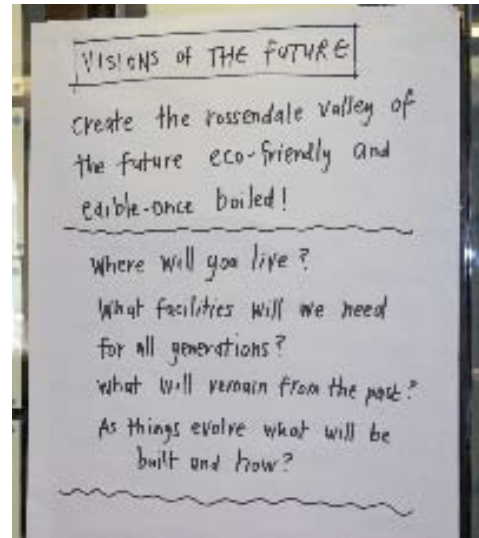 VISIONS OF THE FUTURE
create the rossendale valley of
the future eco-friendly and
edible-once boiled!
Where will you live?
What facilities will we need
for all generations?
What will remain from the past?
As things evolve what will be
built and how?